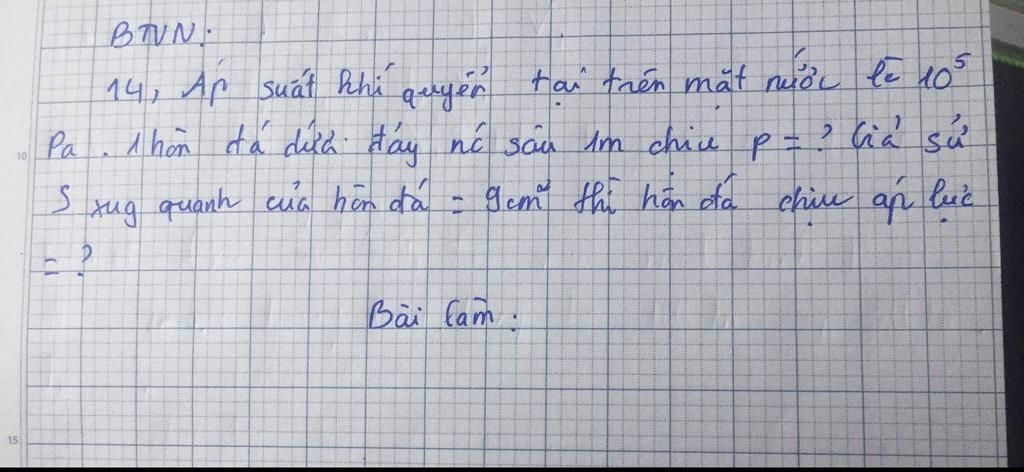 BTVN:
14, Áp suất khí quyển tại trên mặt nước là 10⁵
10 Pa. 1 hòn đá dưới đáy nc sâu 1m chịu p = ? Giả sử
S xug quanh của hòn đá = 9cm² thì hòn đá chịu áp lực
= ?
Bài làm:
15